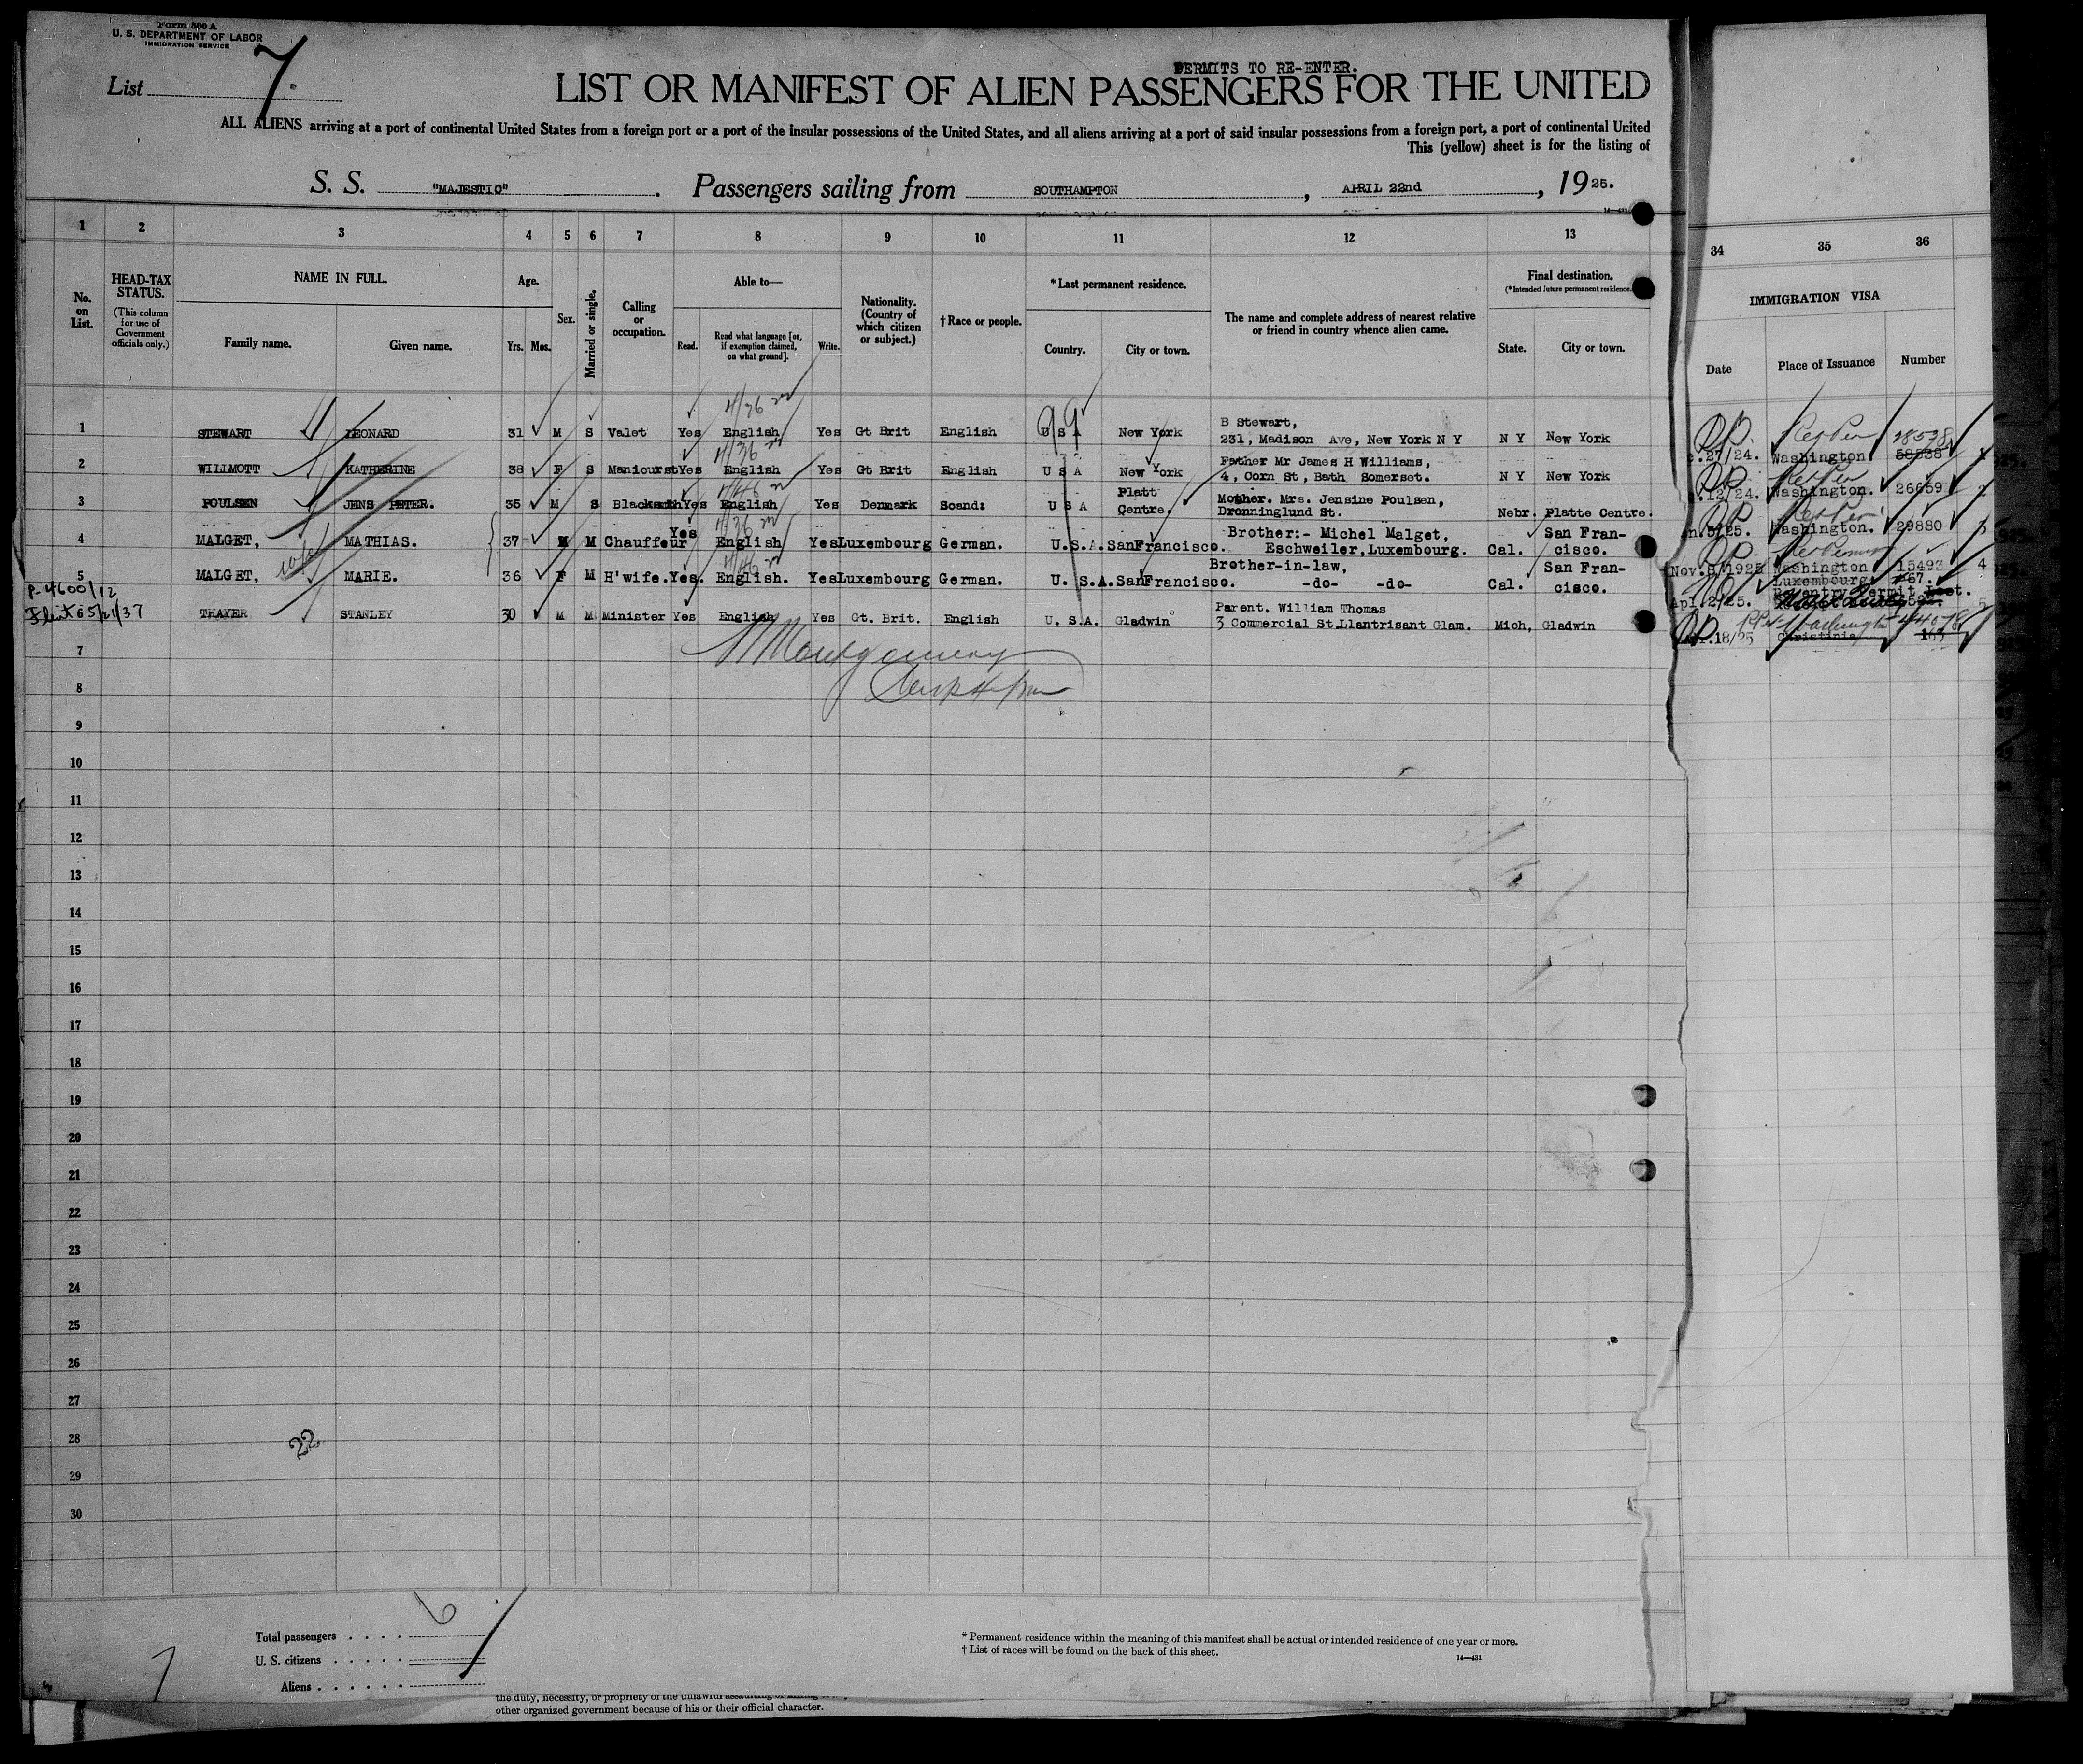 Form 500 A
U. S. DEPARTMENT OF LABOR
IMMIGRATION SERVICE
List 7.
PERMITS TO RE-ENTER.
LIST OR MANIFEST OF ALIEN PASSENGERS FOR THE UNITED
ALL ALIENS arriving at a port of continental United States from a foreign port or a port of the insular possessions of the United States, and all aliens arriving at a port of said insular possessions from a foreign port, a port of continental United
This (yellow) sheet is for the listing of
S. S. "MAJESTIC". Passengers sailing from SOUTHAMPTON, APRIL 22nd, 1925.
1 2 3 4 5 6 7 8 9 10 11 12 13 34 35 36
No. on List.
HEAD-TAX STATUS.
(This column for use of Government officials only.)
NAME IN FULL.
Family name. Given name.
Age.
Yrs. Mos.
Sex.
Married or single.
Calling or occupation.
Able to—
Read. Read what language [or, if exemption claimed, on what ground]. Write.
Nationality. (Country of which citizen or subject.)
†Race or people.
*Last permanent residence.
Country. City or town.
The name and complete address of nearest relative or friend in country whence alien came.
Final destination.
(*Intended future permanent residence.
State. City or town.
IMMIGRATION VISA
Date Place of Issuance Number
1 STEWART LEONARD 31 M S Valet Yes English Yes Gt Brit English U S A New York B Stewart,
231, Madison Ave, New York N Y N Y New York 27/24. Washington. 58538
2 WILLMOTT KATHERINE 38 F S Manicurst Yes English Yes Gt Brit English U S A New York Father Mr James H Williams,
4, Corn St, Bath Somerset. N Y New York 12/24. Washington. 26659 2
3 POULSEN JENS PETER. 35 M S Blacksmith Yes English Yes Denmark Scand: U S A Platt Centre. Mother. Mrs. Jensine Poulsen,
Dronninglund St. Nebr. Platte Centre. Washington. 29880 3
4 MALGET, MATHIAS. 37 M M Chauffeur Yes English Yes Luxembourg German. U.S.A. San Francisco. Brother:- Michel Malget,
Eschweiler, Luxembourg. Cal. San Francisco. Nov. 1925 Washington 15493 4
5 MALGET, MARIE. 36 F M H'wife. Yes. English. Yes Luxembourg German. U. S.A. San Francisco. Brother-in-law,
-do- -do- Cal. San Francisco. Apl.2/25. Luxembourg. 67.
P-4600/12
THAYER STANLEY 30 M M Minister Yes English Yes Gt. Brit. English U. S.A. Gladwin Parent. William Thomas
3 Commercial St. Llantrisant Glam. Mich, Gladwin 18/25 Washington
Christinia
7
8
9
10
11
12
13
14
15
16
17
18
19
20
21
22
23
24
25
26
27
28
22
29
30
Total passengers . . . . 6
U. S. citizens . . . . .
Aliens . . . . . .
* Permanent residence within the meaning of this manifest shall be actual or intended residence of one year or more.
† List of races will be found on the back of this sheet.
14—431
other organized government because of his or their official character.